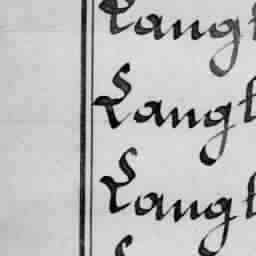 Langt
Langt
Langt